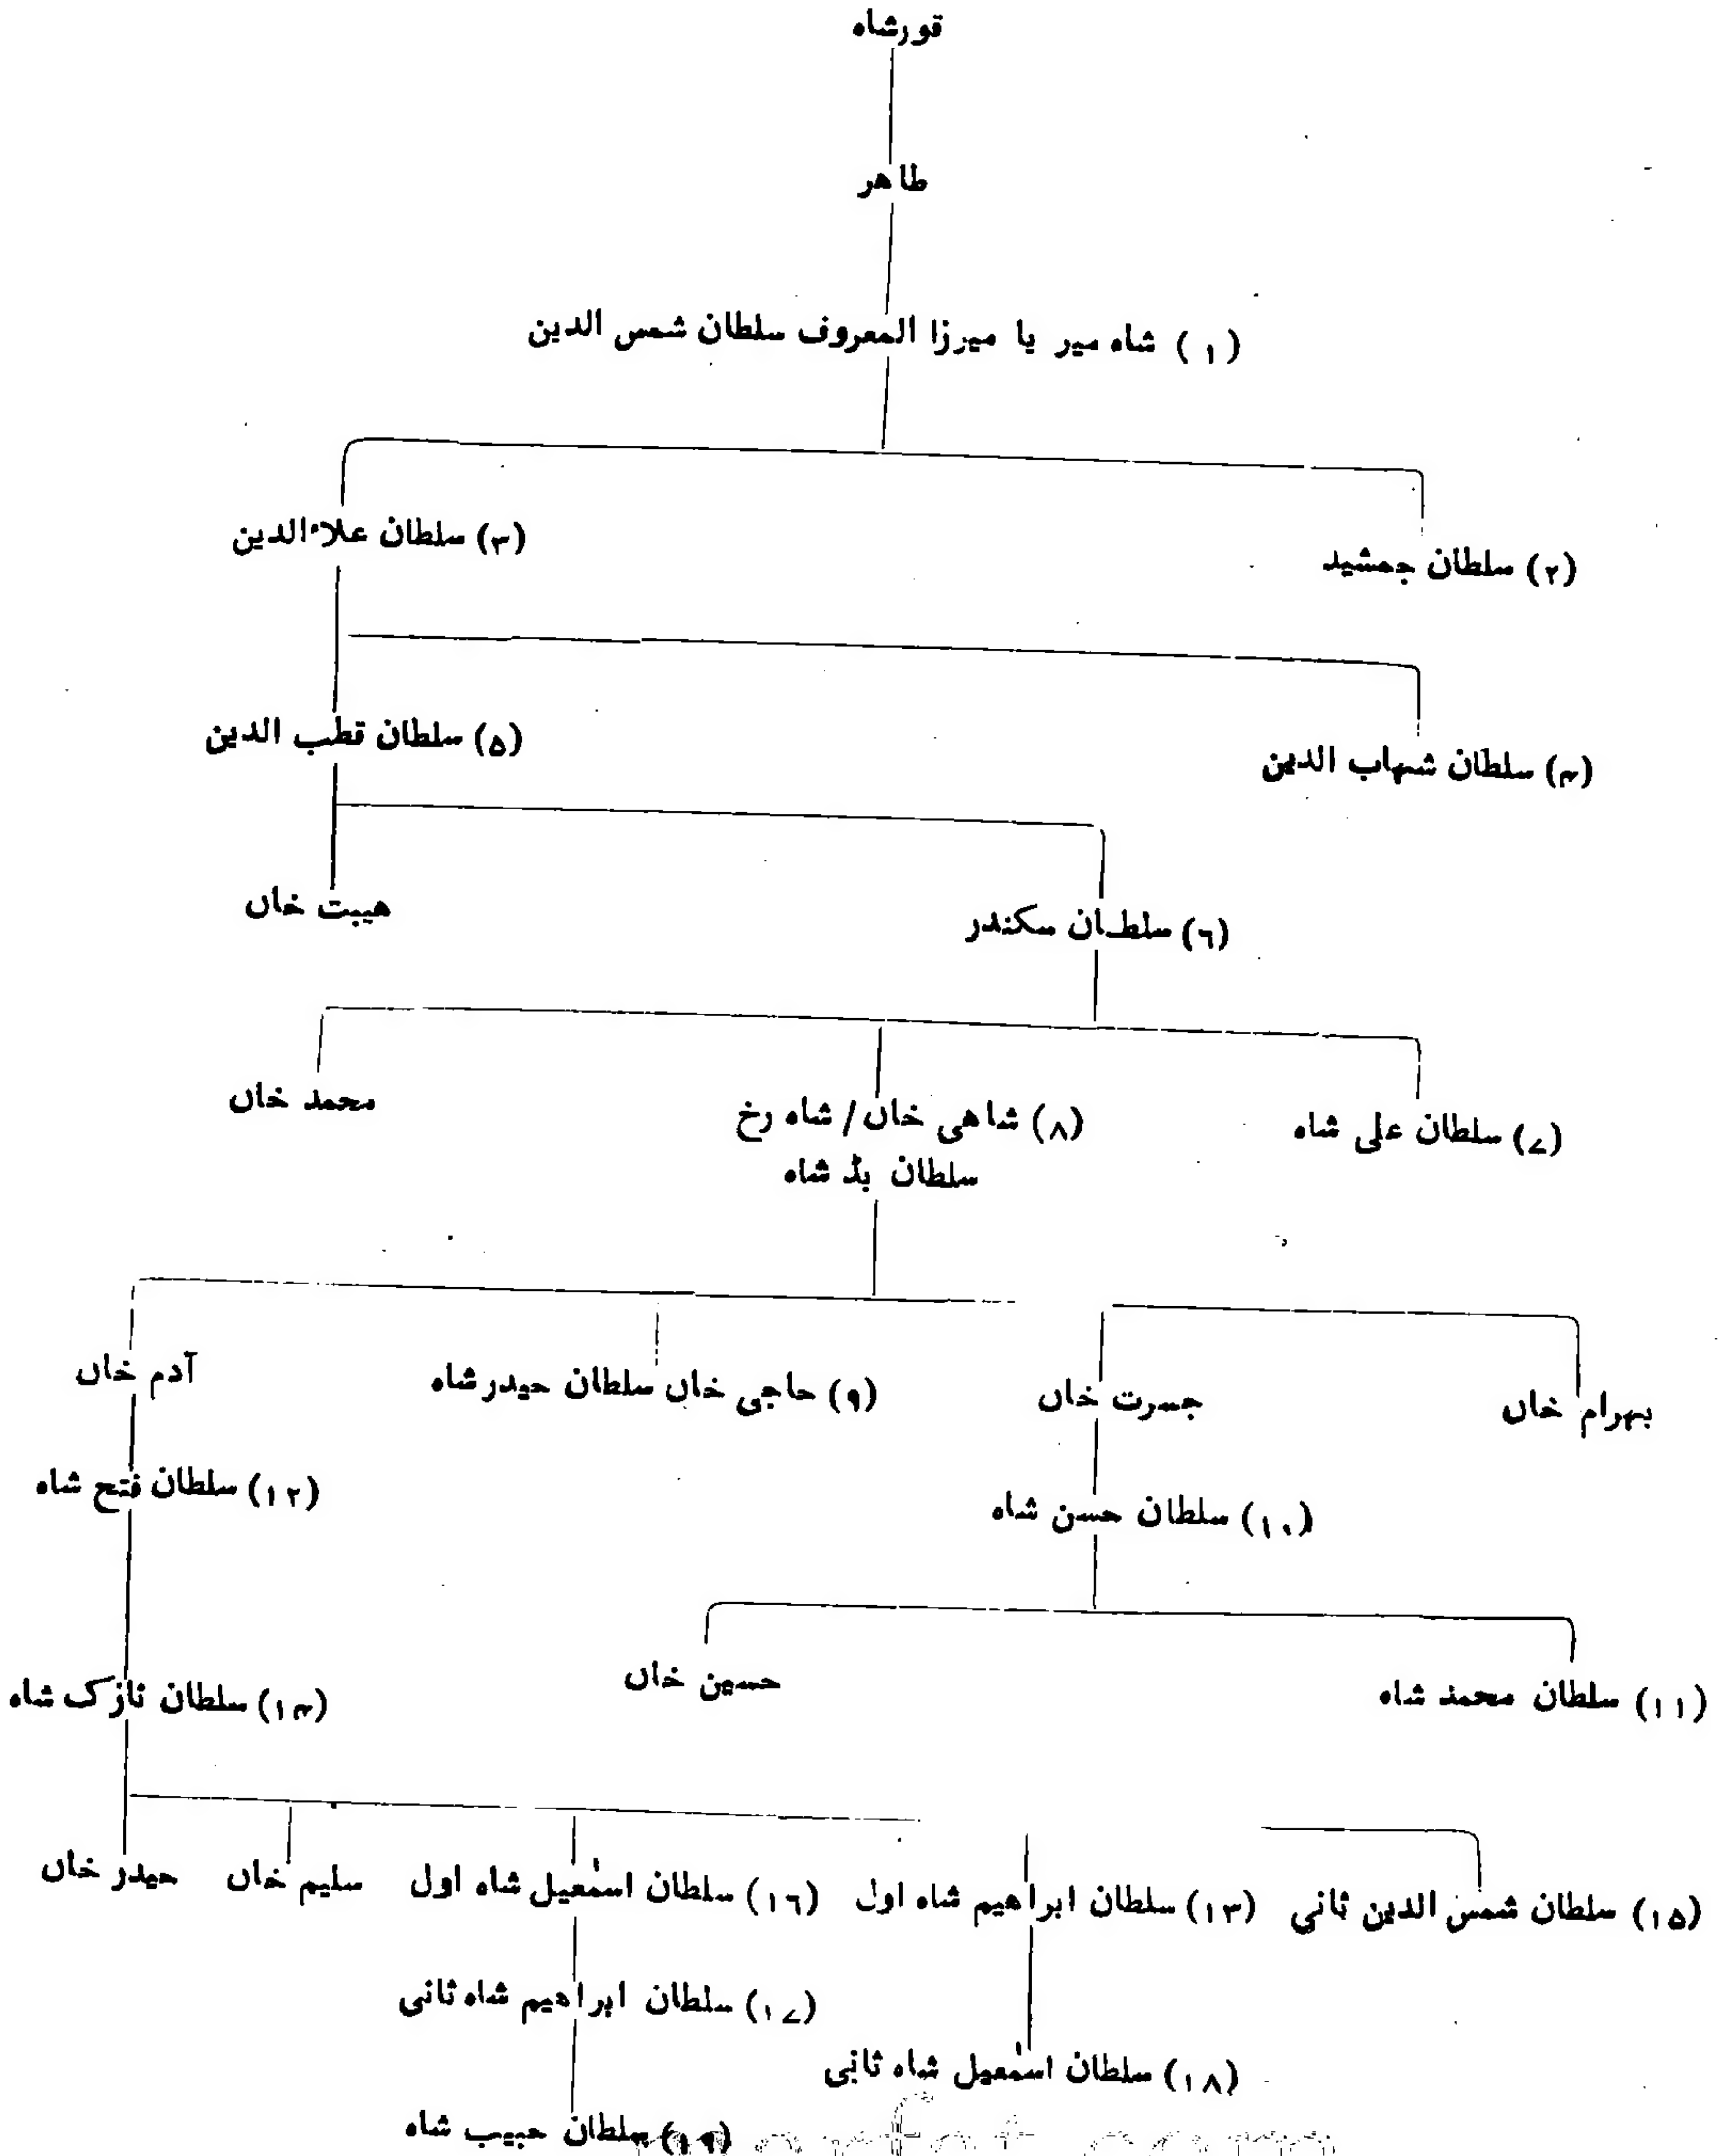 قورشاہ
طاهر
(۱) شاہ میر یا میرزا المعروف سلطان شمس الدین
(۲) سلطان جمشید
(۳) سلطان علاءالدین
(۴) سلطان شہاب الدین
(۵) سلطان قطب الدین
(۶) سلطان سکندر
هیبت خاں
(۷) سلطان علی شاہ
(۸) شاهی خاں / شاہ رخ
سلطان بڈ شاہ
محمد خاں
بہرام خاں
جسرت خاں
(۹) حاجی خاں سلطان حیدر شاہ
آدم خاں
(۱۰) سلطان حسن شاہ
(۱۲) سلطان فتح شاہ
(۱۱) سلطان محمد شاہ
حسین خاں
(۱۴) سلطان نازک شاہ
(۱۵) سلطان شمس الدین ثانی
(۱۳) سلطان ابراهیم شاہ اول
(۱۶) سلطان اسمٰعیل شاہ اول
سلیم خاں
حیدر خاں
(۱۷) سلطان ابراهیم شاہ ثانی
(۱۸) سلطان اسمٰعیل شاہ ثانی
(۱۹) سلطان حبیب شاہ